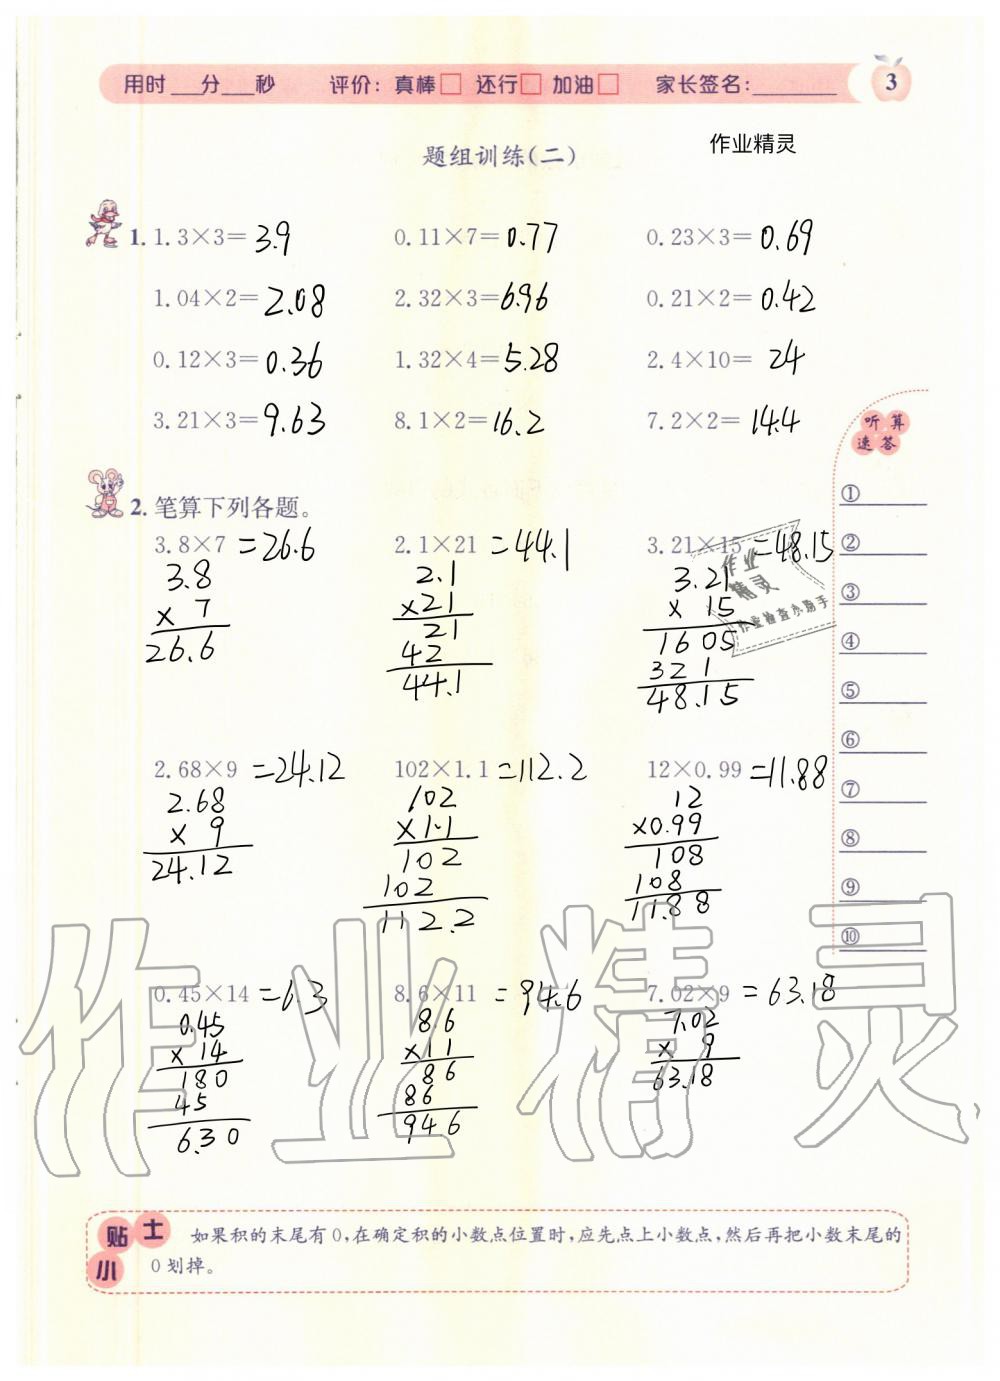 用时___分___秒 评价：真棒□ 还行□ 加油□ 家长签名：________ 3
题组训练(二) 作业精灵
1. 1.3×3= 3.9 0.11×7= 0.77 0.23×3= 0.69
1.04×2= 2.08 2.32×3= 6.96 0.21×2= 0.42
0.12×3= 0.36 1.32×4= 5.28 2.4×10= 24
3.21×3= 9.63 8.1×2= 16.2 7.2×2= 14.4
听算
速答
2. 笔算下列各题。
3.8×7 =26.6 2.1×21 =44.1 3.21×15 =48.15
3.8 2.1 3.21
× 7 ×21 × 15
26.6 21 1605
42 321
44.1 48.15
2.68×9 =24.12 102×1.1 =112.2 12×0.99 =11.88
2.68 102 12
× 9 ×1.1 ×0.99
24.12 102 108
102 108
112.2 11.88
0.45×14 =6.3 8.6×11 =94.6 7.02×9 =63.18
0.45 86 7.02
× 14 ×11 × 9
180 86 63.18
45 86
6.30 946
①
②
③
④
⑤
⑥
⑦
⑧
⑨
⑩
作业
精灵
作业检查小助手
作业精灵
小贴士 如果积的末尾有0,在确定积的小数点位置时,应先点上小数点,然后再把小数末尾的
0划掉。